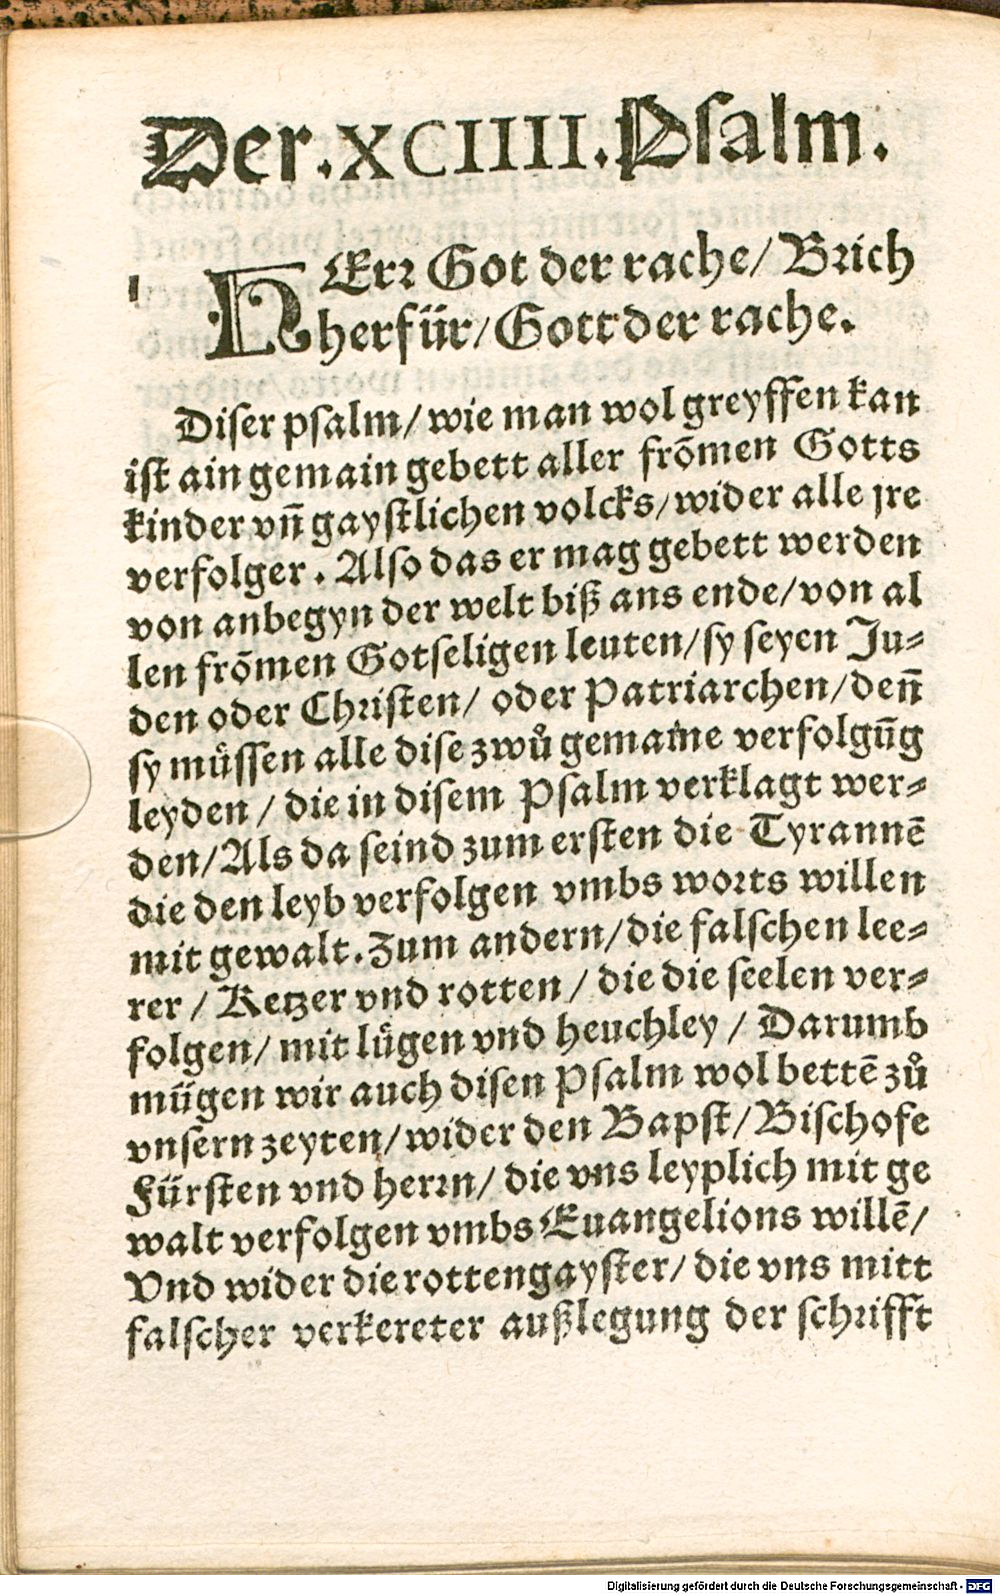 Der.XCIIII.Psalm.
1 HErr Got der rache/ Brich
herfür/Gott der rache.
Diser psalm/wie man wol greyffen kan
ist ain gemain gebett aller frõmen Gotts
kinder vñ gaystlichen volcks/wider alle jre
verfolger. Also das er mag gebett werden
von anbegyn der welt biß ans ende/von al
len frõmen Gotseligen leuten/sy seyen Ju⸗
den oder Christen/ oder Patriarchen/deñ
sy muͤssen alle dise zwů gemaine verfolgũg
leyden / die in disem Psalm verklagt wer⸗
den/Als da seind zum ersten die Tyrannẽ
die den leyb verfolgen vmbs worts willen
mit gewalt.Zum andern/die falschen lee⸗
rer / Ketzer vnd rotten / die die seelen ver⸗
folgen/ mit luͤgen vnd heuchley / Darumb
mügen wir auch disen Psalm wol bettẽ zů
vnsern zeyten/wider den Bapst/Bischofe
Fürsten vnd herrn/ die vns leyplich mit ge
walt verfolgen vmbs Euangelions willẽ/
Vnd wider die rottengayster/ die vns mitt
falscher verkereter außlegung der schrifft
Digitalisierung gefördert durch die Deutsche Forschungsgemeinschaft - DFG